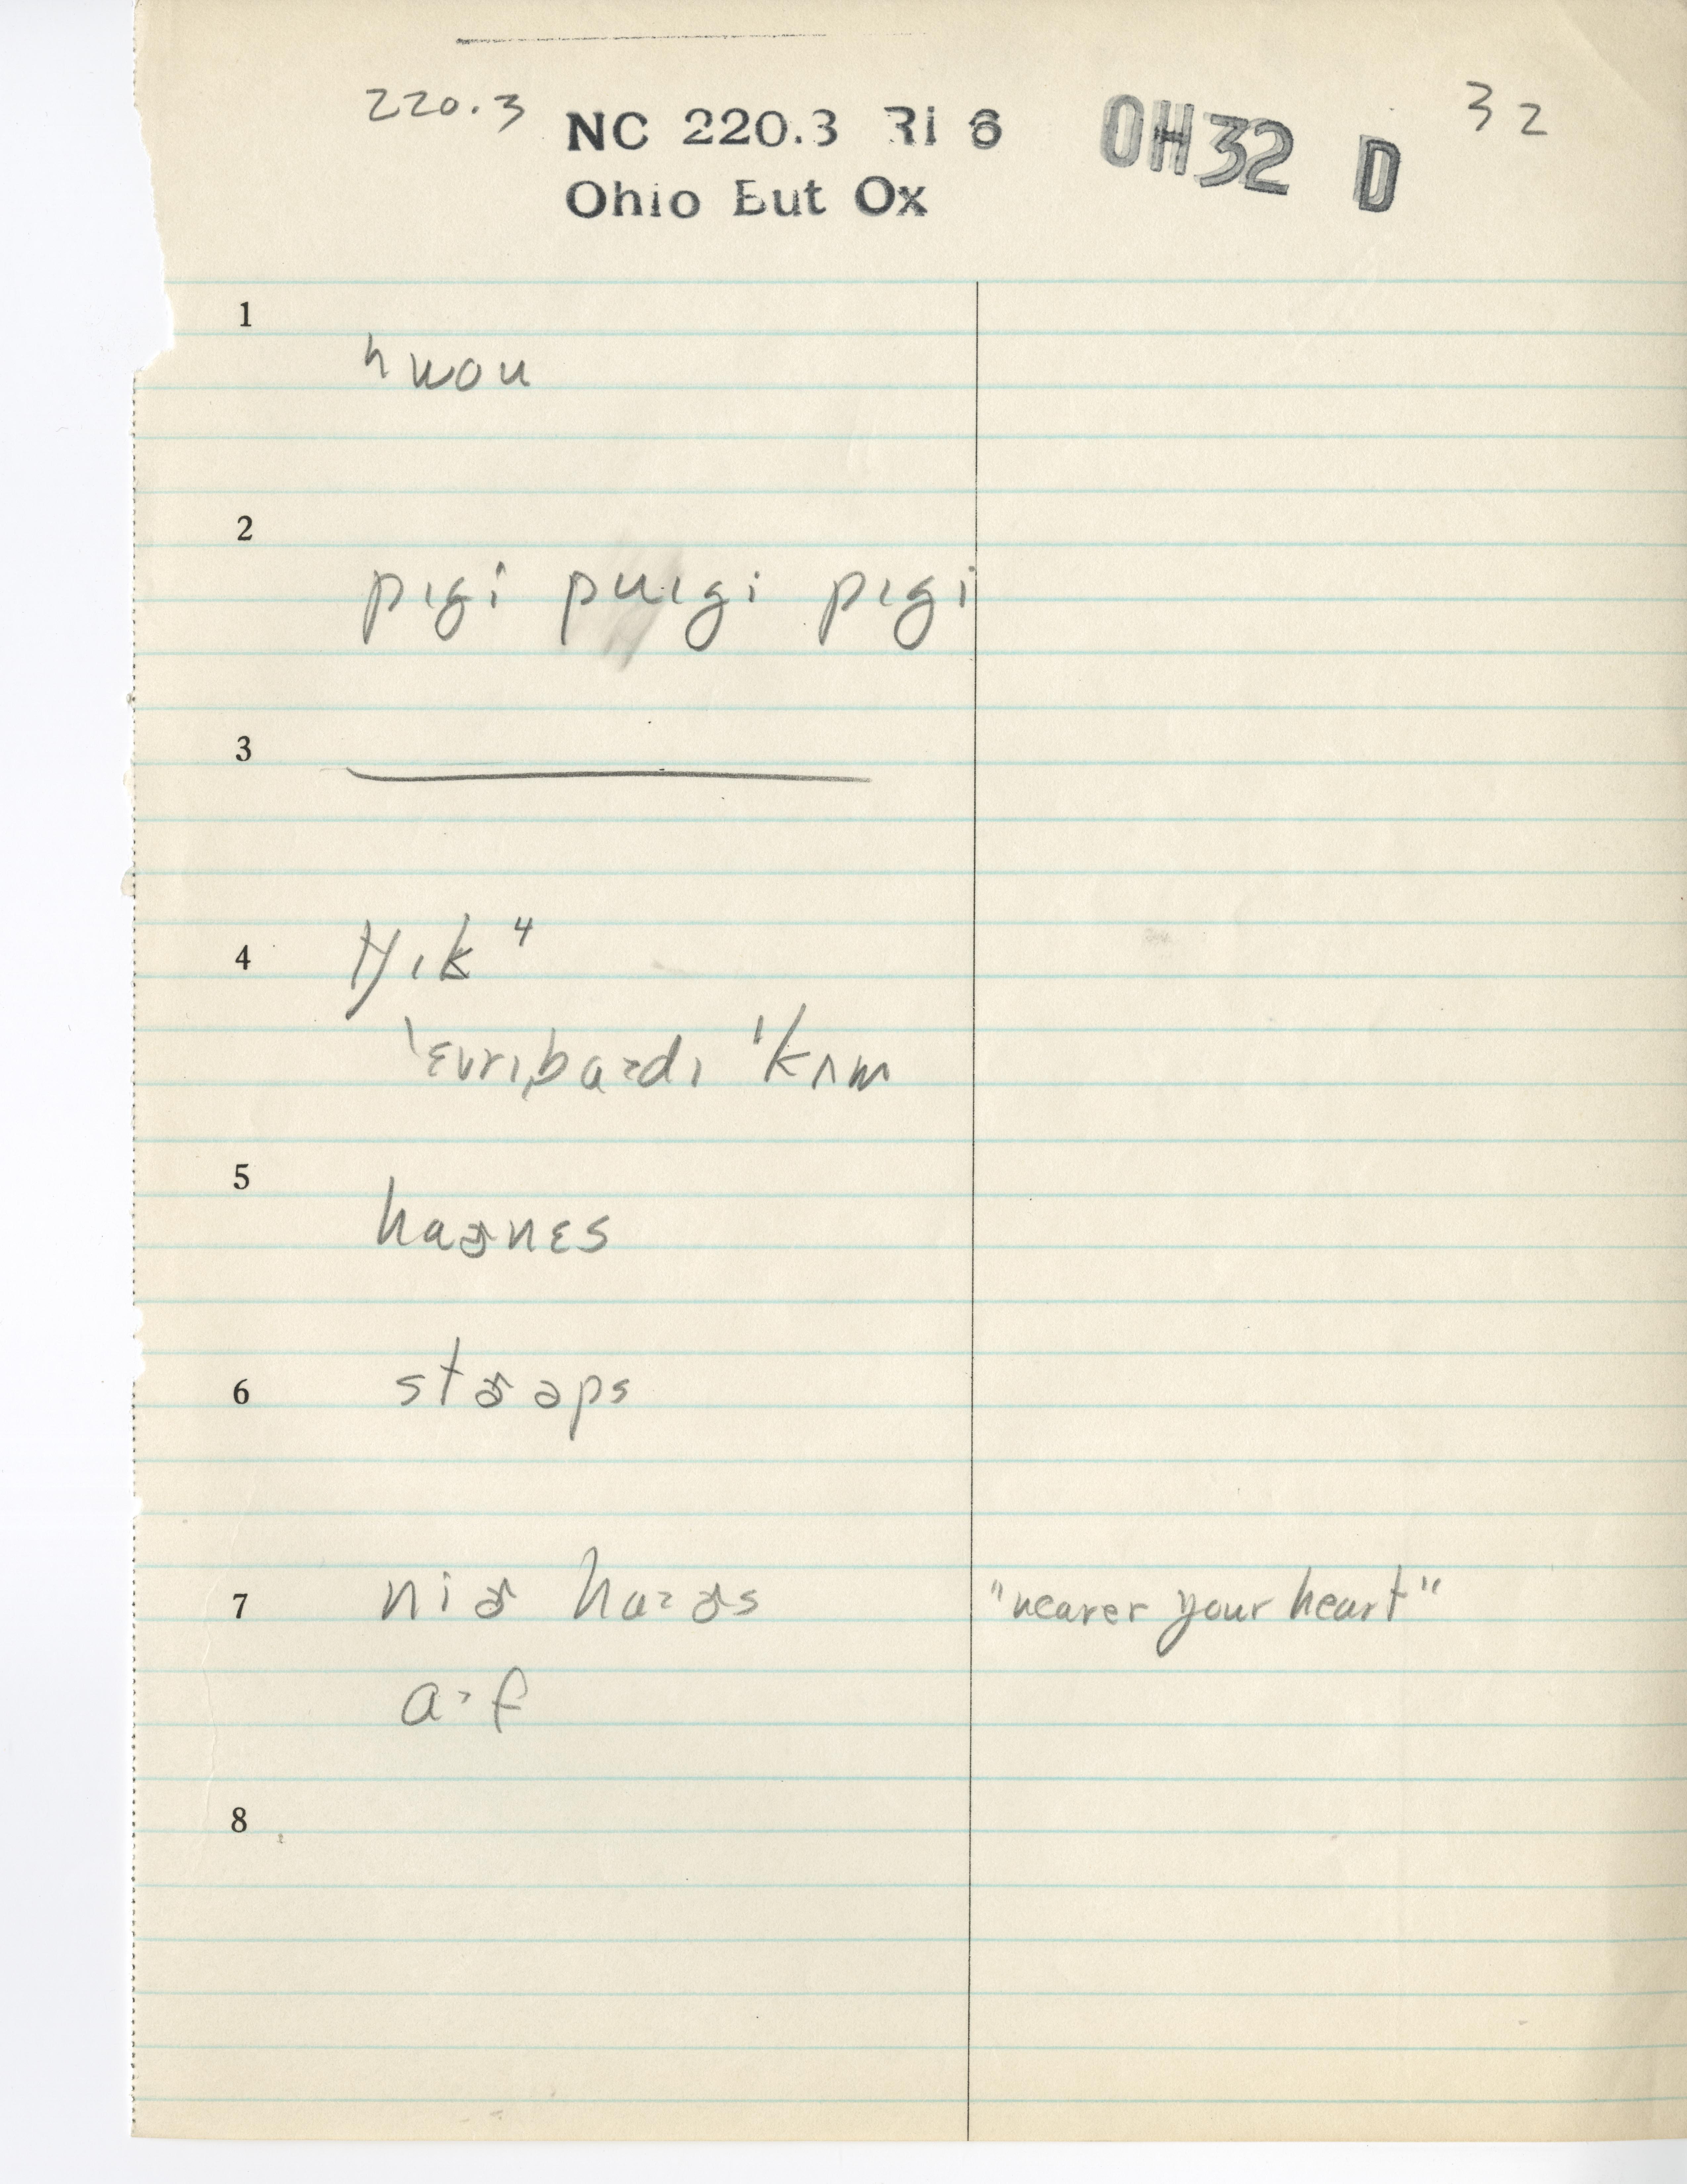 220.3 NC 220.3 Ri 6 OH32 D 32
Ohio Eut Ox
1
ʰwou
2
pɪgi puɪgi pɪgi
3
4
ˈɛvrɪˌbaədɪ ˈkʌm
5
haɚnɛs
6
stɚəps
7 niɚ haɚs "nearer your heart"
8